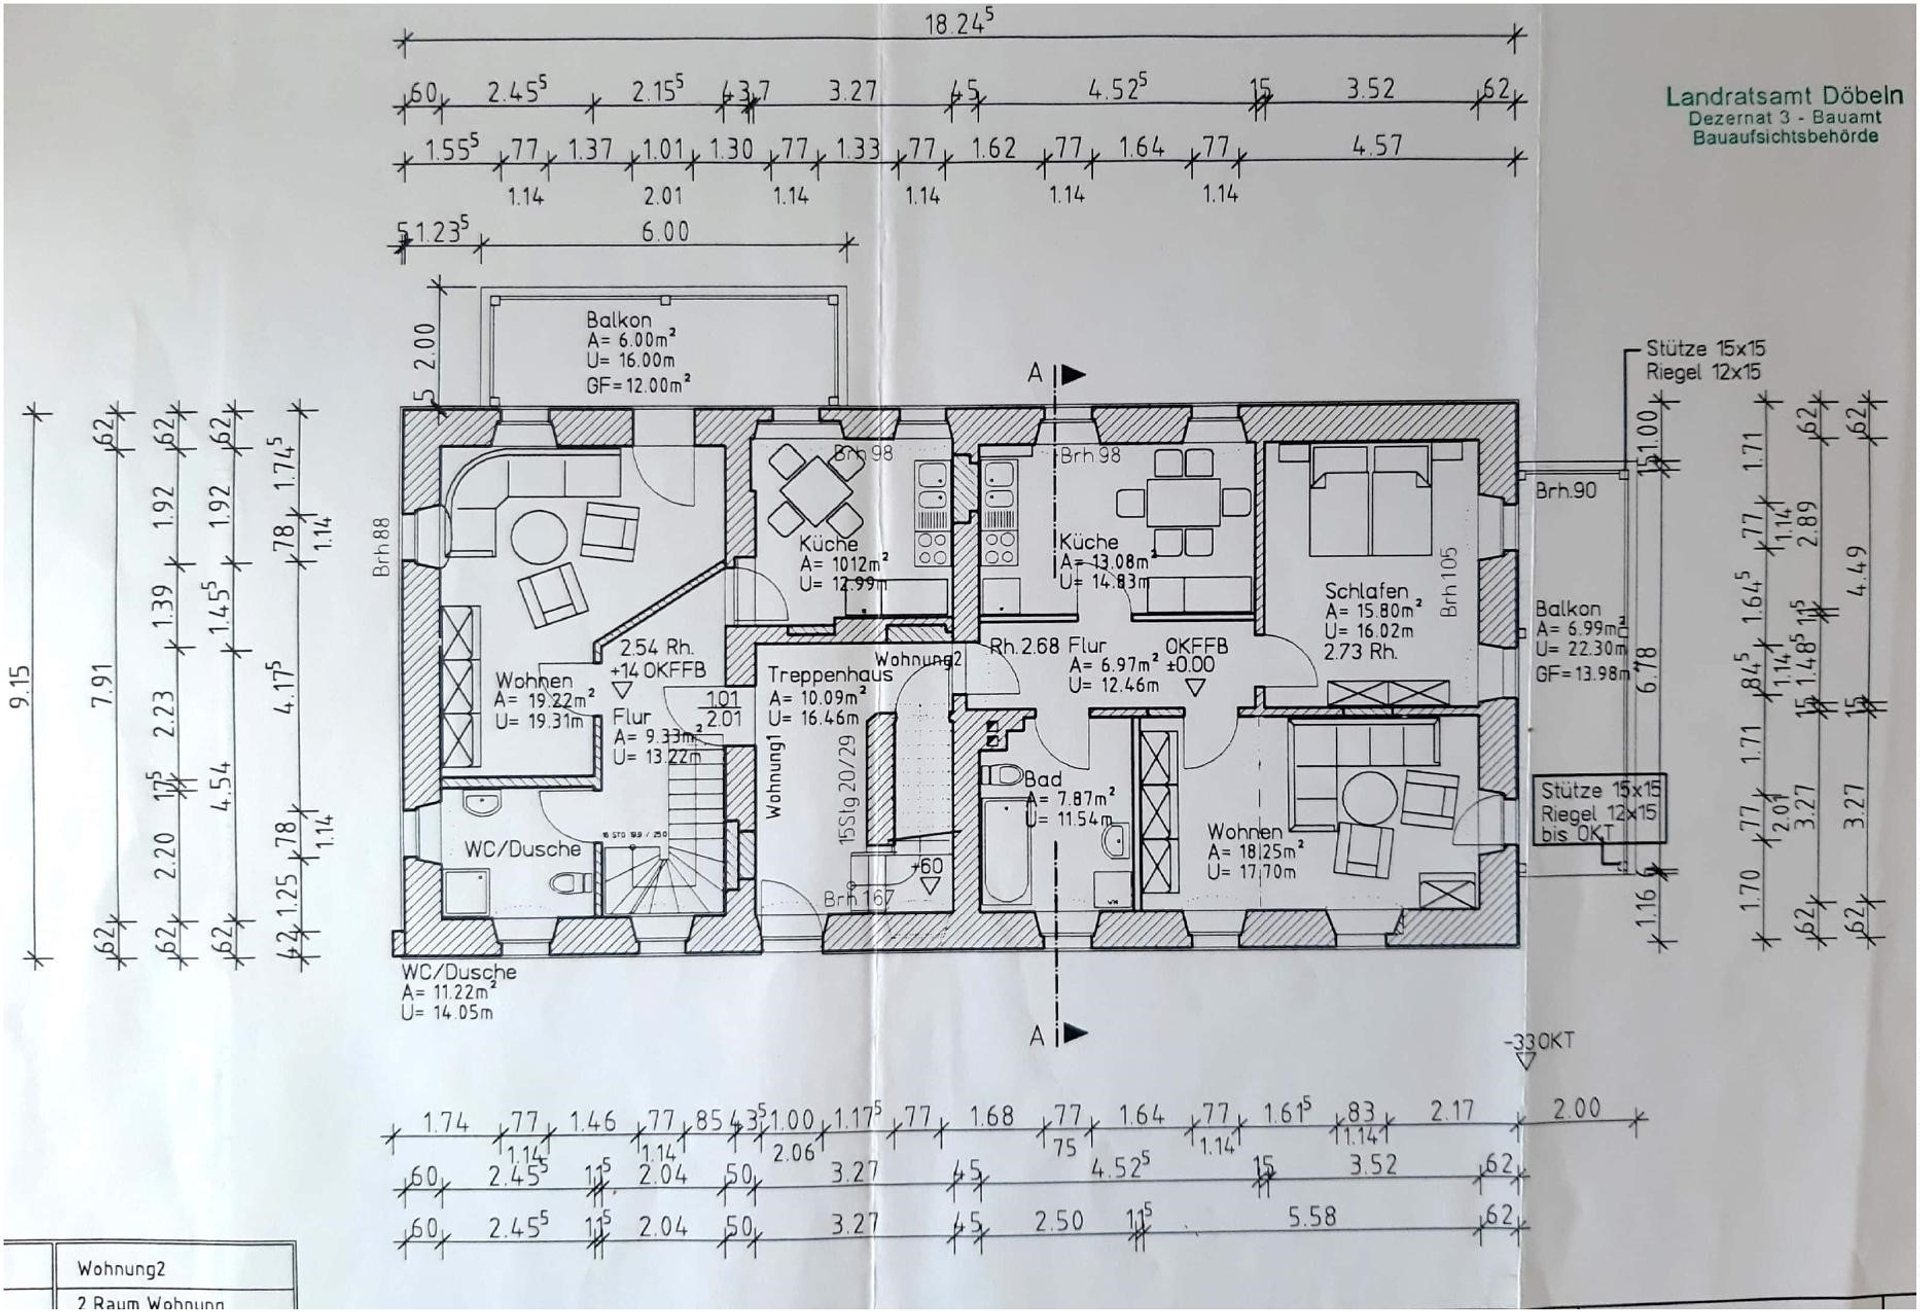 18.24⁵
60 2.45⁵ 2.15⁵ 43 7 3.27 45 4.52⁵ 15 3.52 62
1.55⁵ 77 1.37 1.01 1.30 77 1.33 77 1.62 77 1.64 77 4.57
1.14 2.01 1.14 1.14 1.14 1.14
5 1.23⁵ 6.00
Landratsamt Döbeln
Dezernat 3 - Bauamt
Bauaufsichtsbehörde
2.00
5
Balkon
A= 6.00m²
U= 16.00m
GF= 12.00m²
A
Stütze 15x15
Riegel 12x15
9.15
62 7.91 62
62 1.92 1.39 2.23 17⁵ 2.20 62
62 1.92 1.45⁵ 4.54 62
1.74⁵ 78 1.14 4.17⁵ 78 1.14 1.25 42
Brh 88
Brh 98
Küche
A= 1012m²
U= 12.99m
Brh 98
Küche
A= 13.08m²
U= 14.83m
Schlafen
A= 15.80m²
U= 16.02m
2.73 Rh.
Brh 105
Brh.90
Balkon
A= 6.99m²
U= 22.30m
GF= 13.98m²
2.54 Rh.
+14 OKFFB
Wohnen
A= 19.22m²
U= 19.31m
Flur
A= 9.33m²
U= 13.22m
1.01
2.01
Treppenhaus
A= 10.09m²
U= 16.46m
Wohnung2
Wohnung1
15Stg 20/29
Rh. 2.68 Flur
A= 6.97m²
U= 12.46m
OKFFB
±0.00
Bad
A= 7.87m²
U= 11.54m
Wohnen
A= 18.25m²
U= 17.70m
Stütze 15x15
Riegel 12x15
bis OKT
WC/Dusche
+60
Brh 167
WM
1.00
15
6.78
6
1.16
1.71 77 1.14 1.64⁵ 84⁵ 1.14 1.71 77 2.01 1.70
62 2.89 11⁵ 1.48⁵ 15 3.27 62
62 4.49 15 3.27 62
WC/Dusche
A= 11.22m²
U= 14.05m
A
-33 OKT
1.74 77 1.46 77 85 43⁵ 1.00 1.17⁵ 77 1.68 77 1.64 77 1.61⁵ 83 2.17 2.00
1.14 1.14 2.06 75 1.14 1.14
60 2.45⁵ 11⁵ 2.04 50 3.27 45 4.52⁵ 15 3.52 62
60 2.45⁵ 11⁵ 2.04 50 3.27 45 2.50 11⁵ 5.58 62
Wohnung2
2 Raum Wohnung